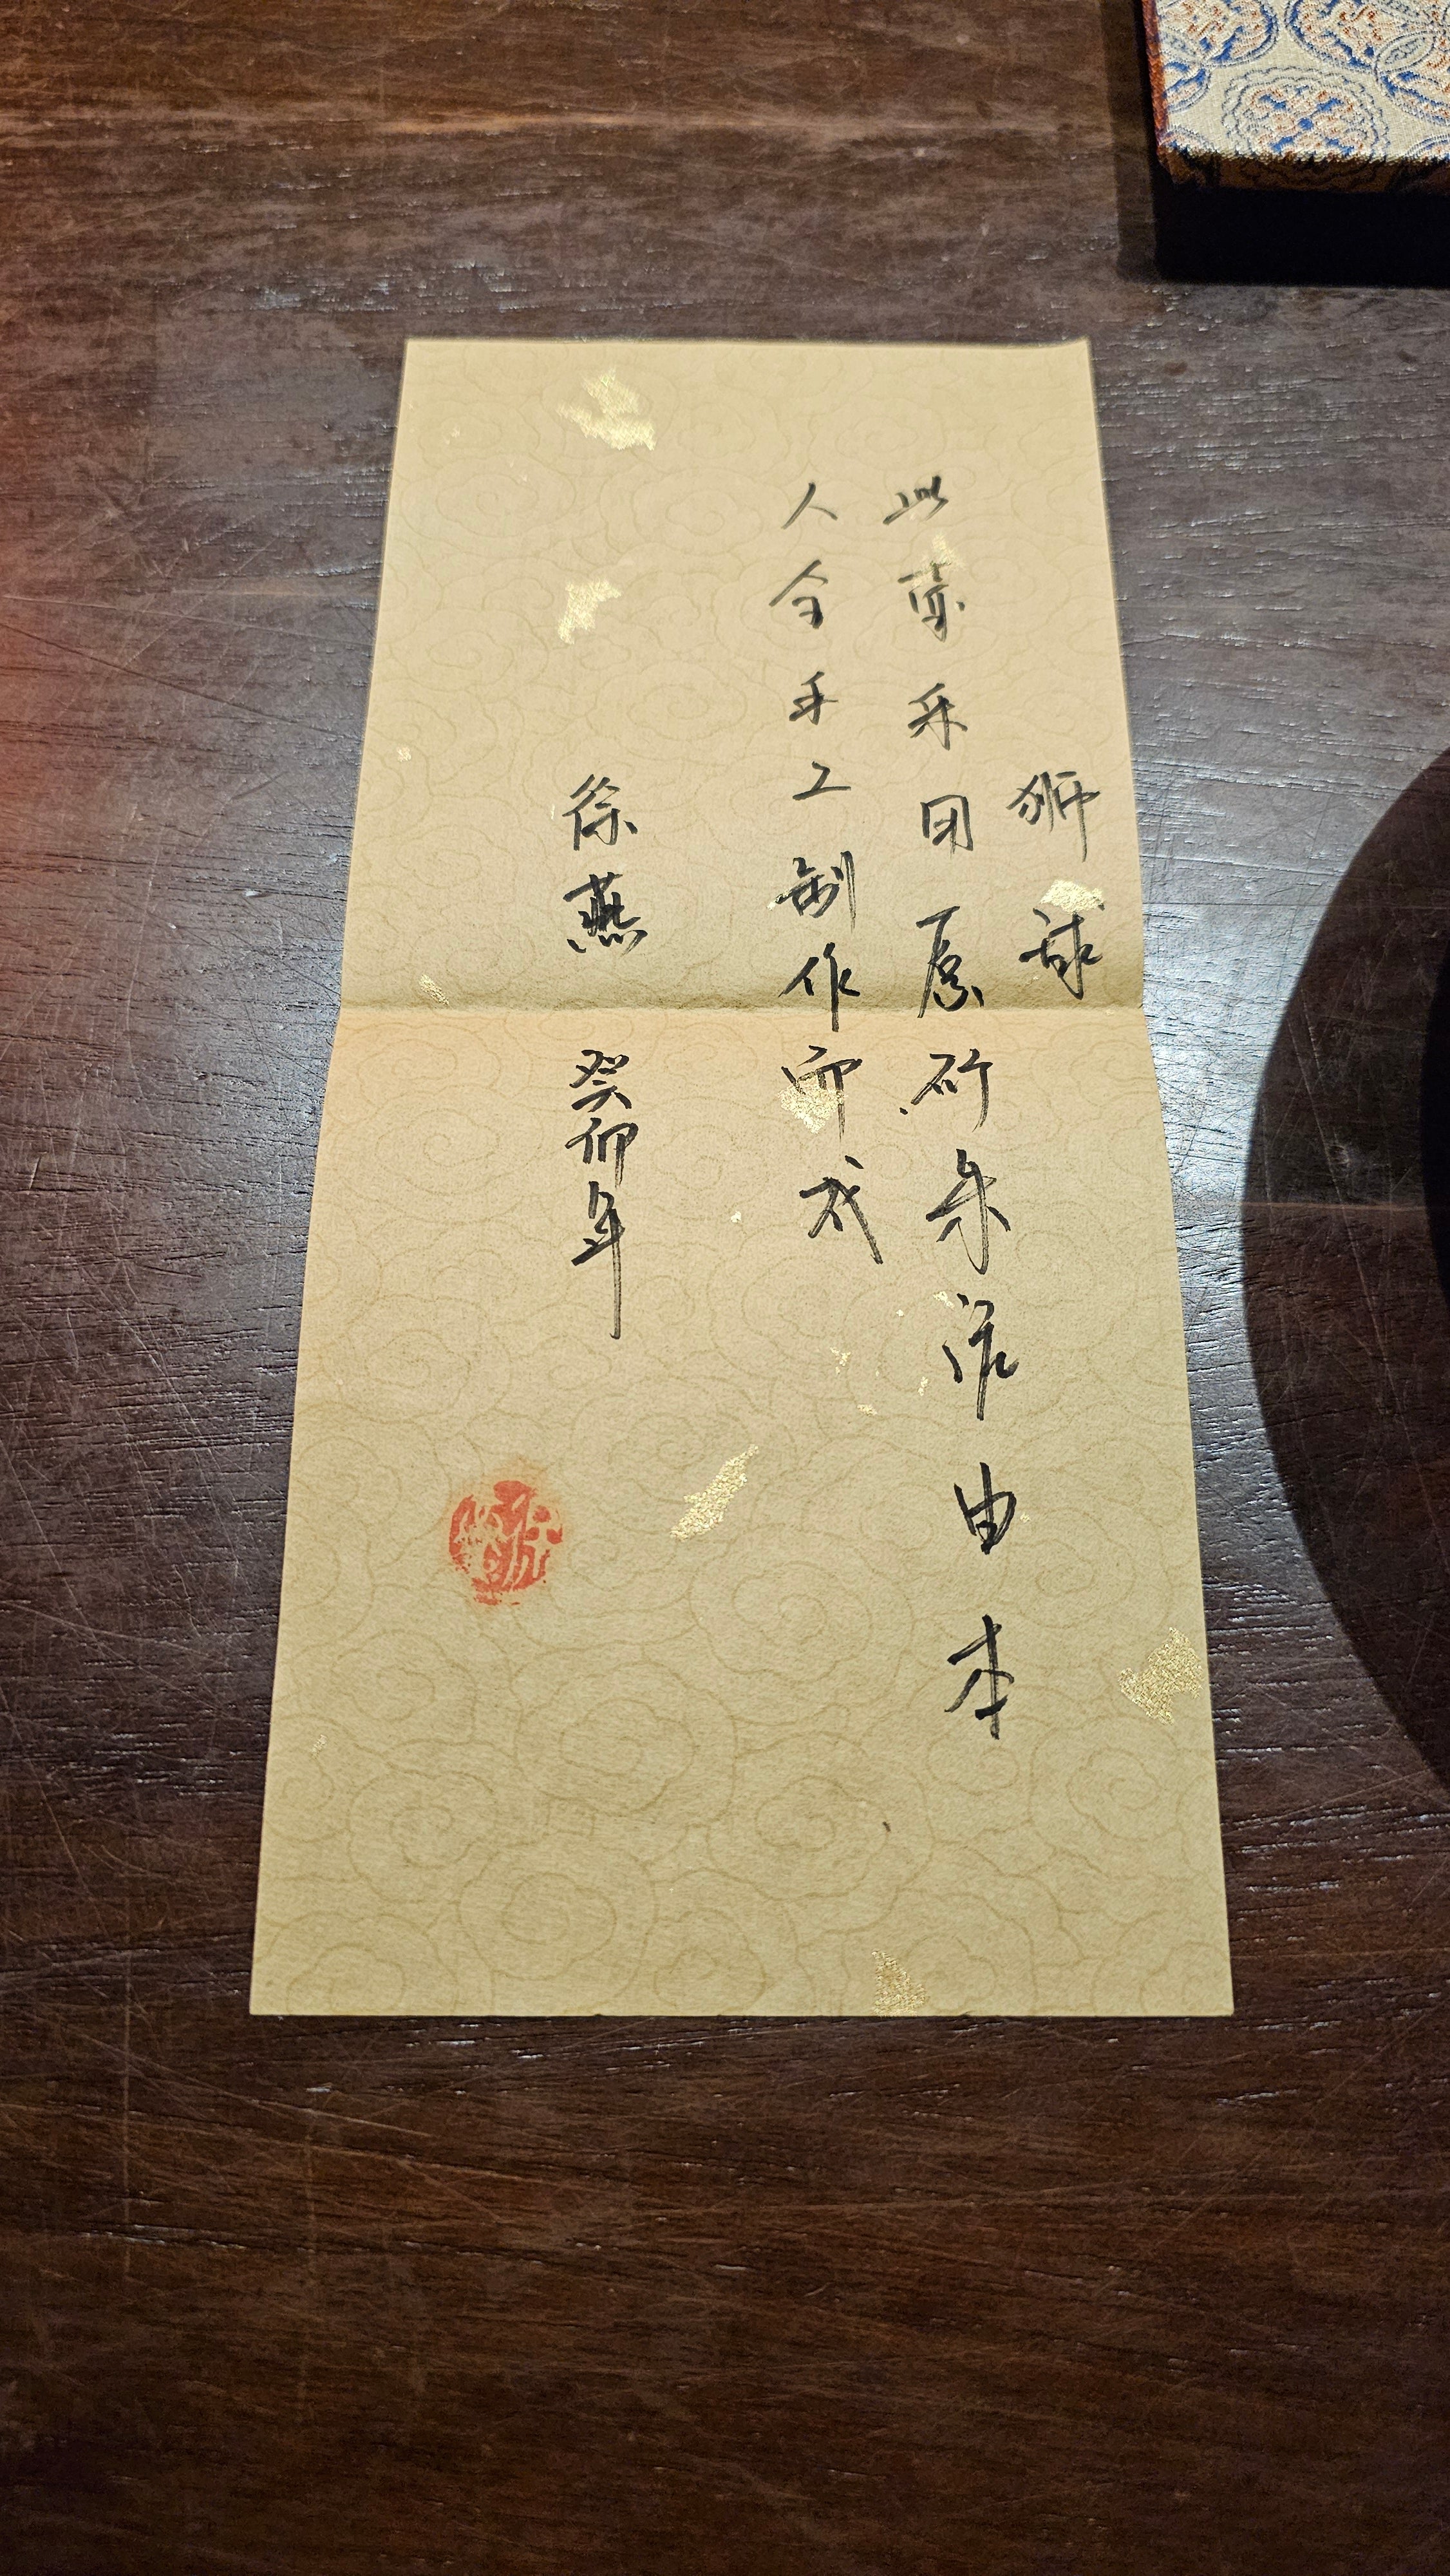 狮球
此壶采用原矿朱泥由本
人全手工制作而成
徐燕 癸卯年